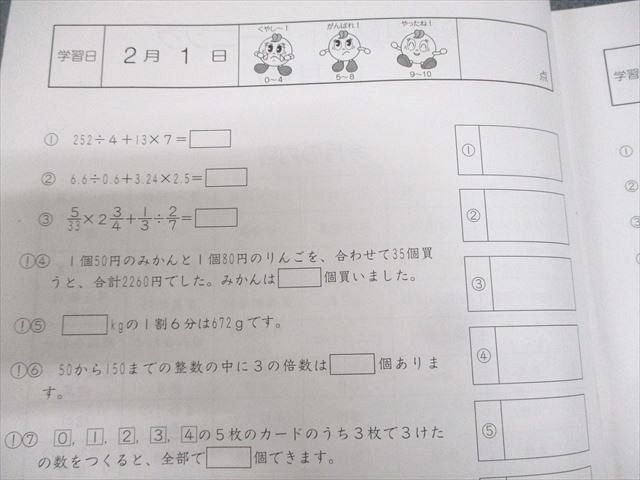 学習日
2月 1日
くやし〜!
がんばれ!
やったね!
0〜4
5〜8
9〜10
点
学習
① 252÷4+13×7=□
② 6.6÷0.6+3.24×2.5=□
③ 5/33×2 3/4+1/3÷2/7=□
(!)④ 1個50円のみかんと1個80円のりんごを、合わせて35個買
うと、合計2260円でした。みかんは□個買いました。
(!)⑤ □kgの1割6分は672gです。
(!)⑥ 50から150までの整数の中に3の倍数は□個ありま
す。
(!)⑦ 0, 1, 2, 3, 4の5枚のカードのうち3枚で3けた
の数をつくると、全部で□個できます。
①
②
③
④
⑤
①
②